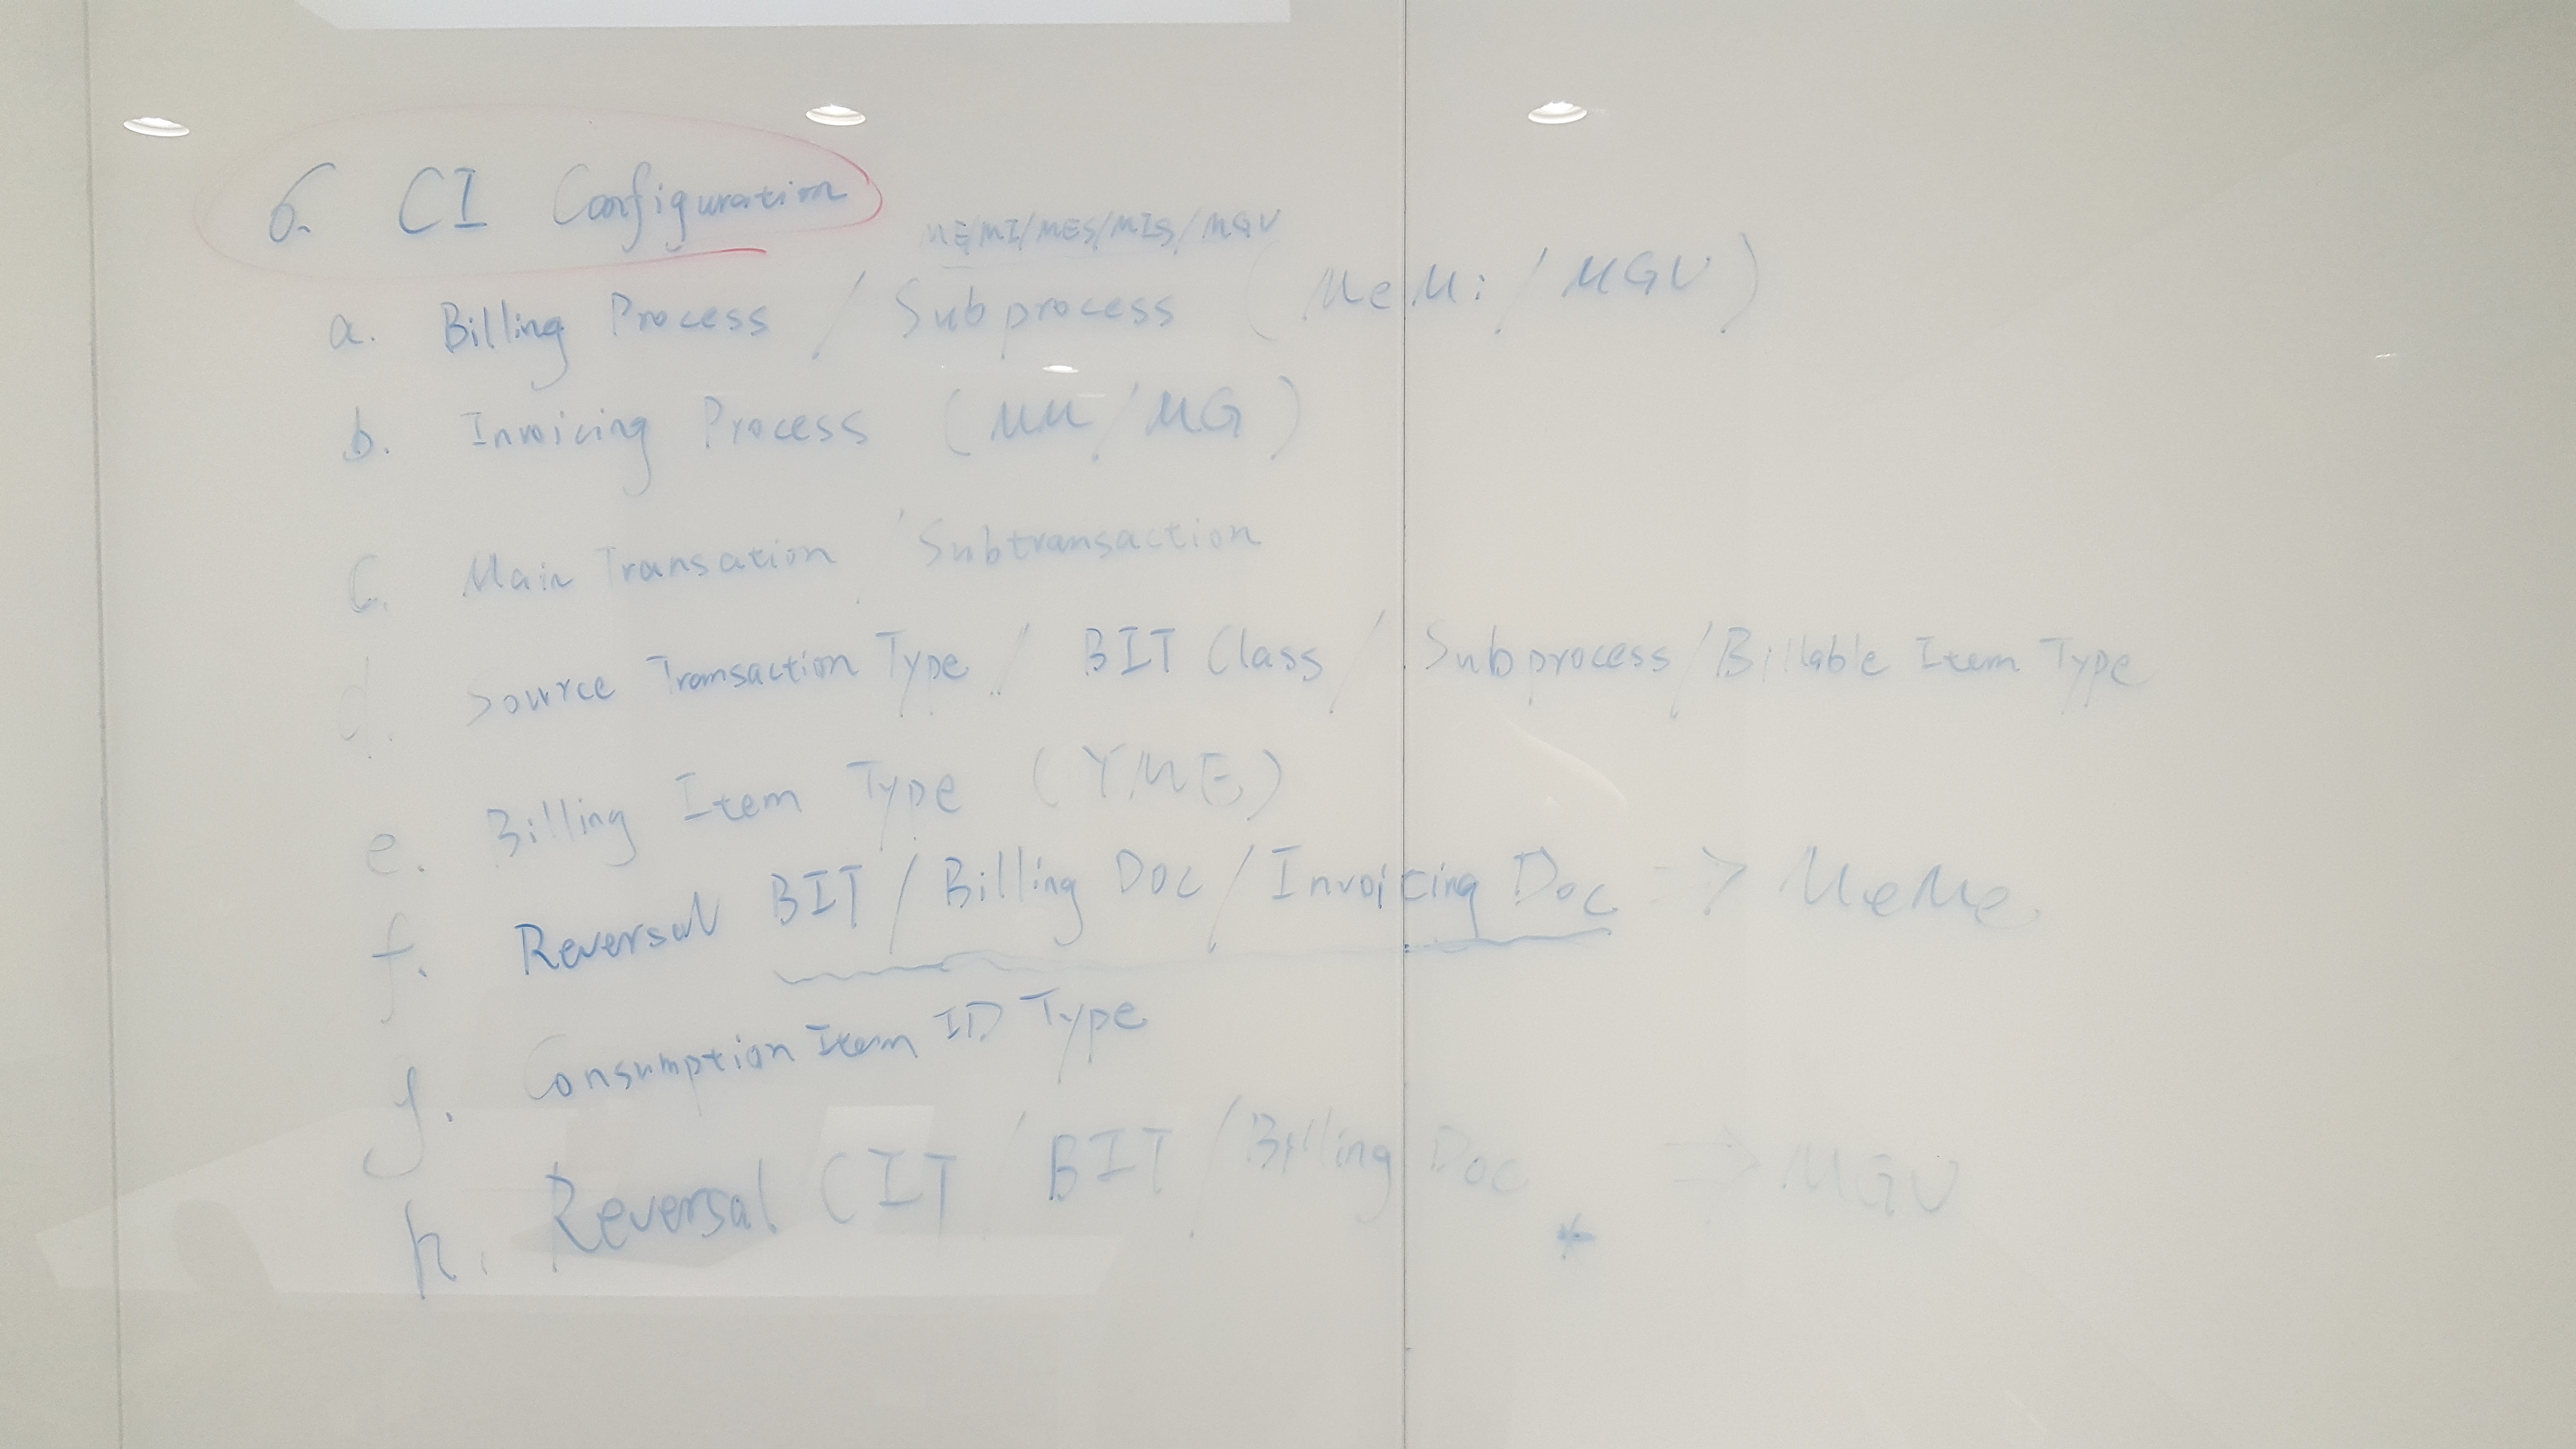 6. CI Configuration
ME/MI/MES/MIS/MGV
a. Billing Process / Subprocess (MeMi/MGV)
b. Invoicing Process (MM/MG)
c. Main Transation / Subtransaction
d. Source Transaction Type / BIT Class / Subprocess / Billable Item Type
e. Billing Item Type (YME)
f. Reversal BIT / Billing Doc / Invoicing Doc => MeMe
g. Consumption Item ID Type
h. Reversal CIT / BIT / Billing Doc => MGV
*